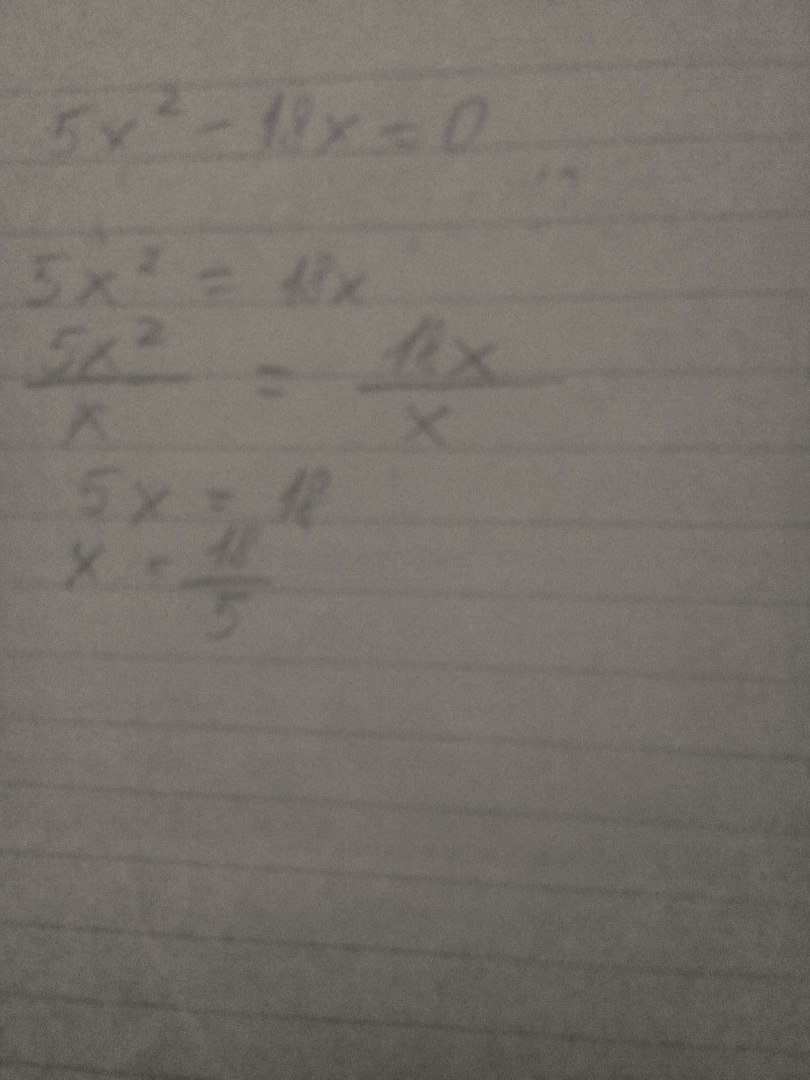 5x² - 18x = 0
5x² = 18x
5x²/x = 18x/x
5x = 18
x = 18/5